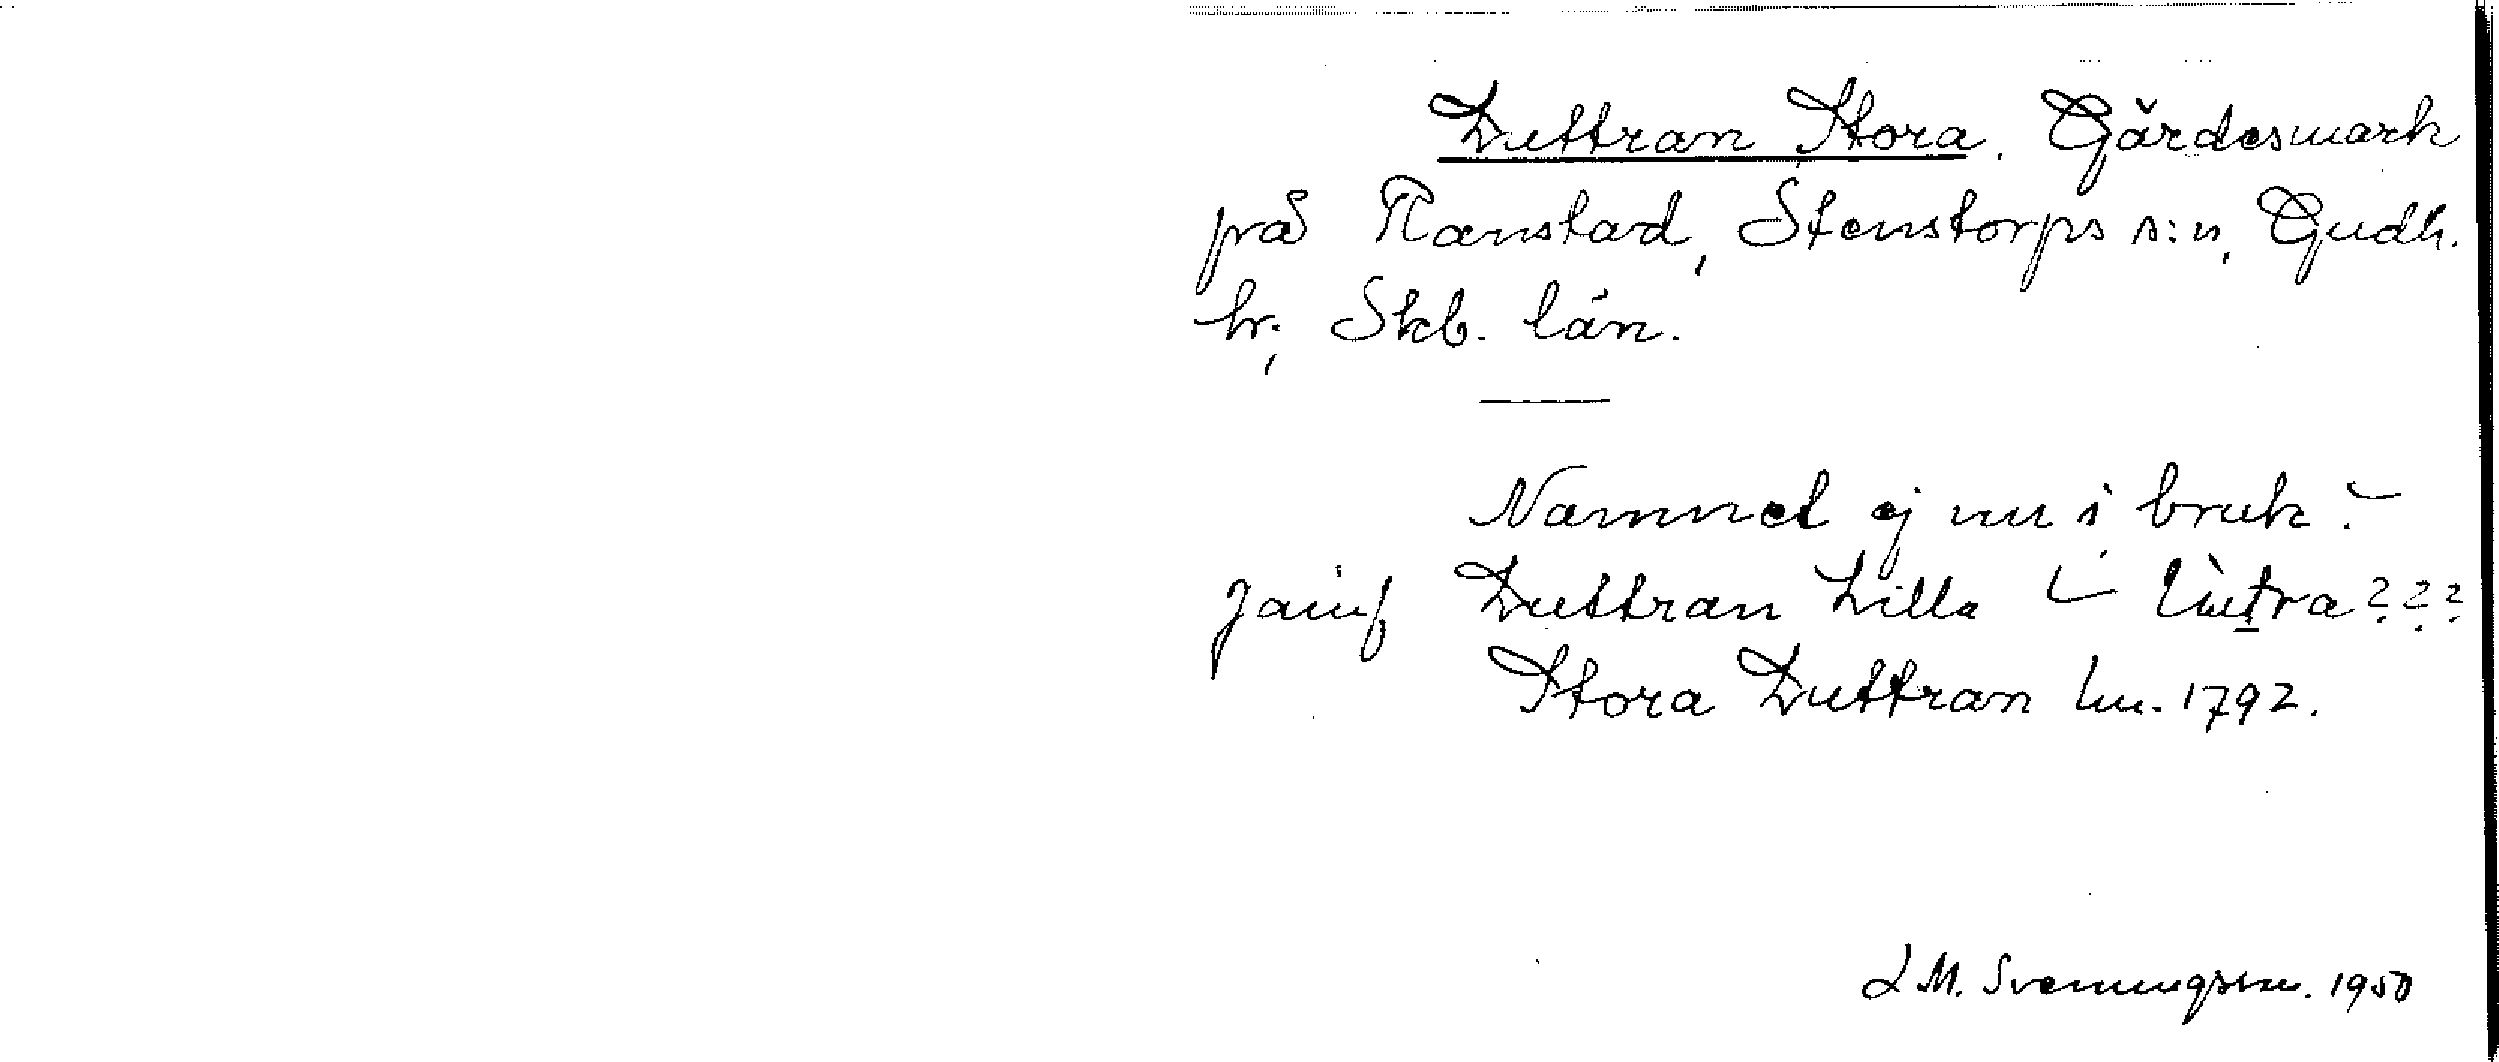 Duttran Stora. Gärdesmark
på Ranstad, Stenstorps s:n, Gudh.
hr, Skb. län.
Namnet ej nu i bruk. –
Jämf Duttran Lilla – ???
Stora Duttran hm. 1792.
L M. Svenungsson. 1950